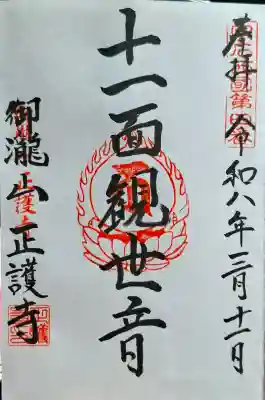 奉拝 令和八年三月十一日
十一面観世音
御瀧山正護寺